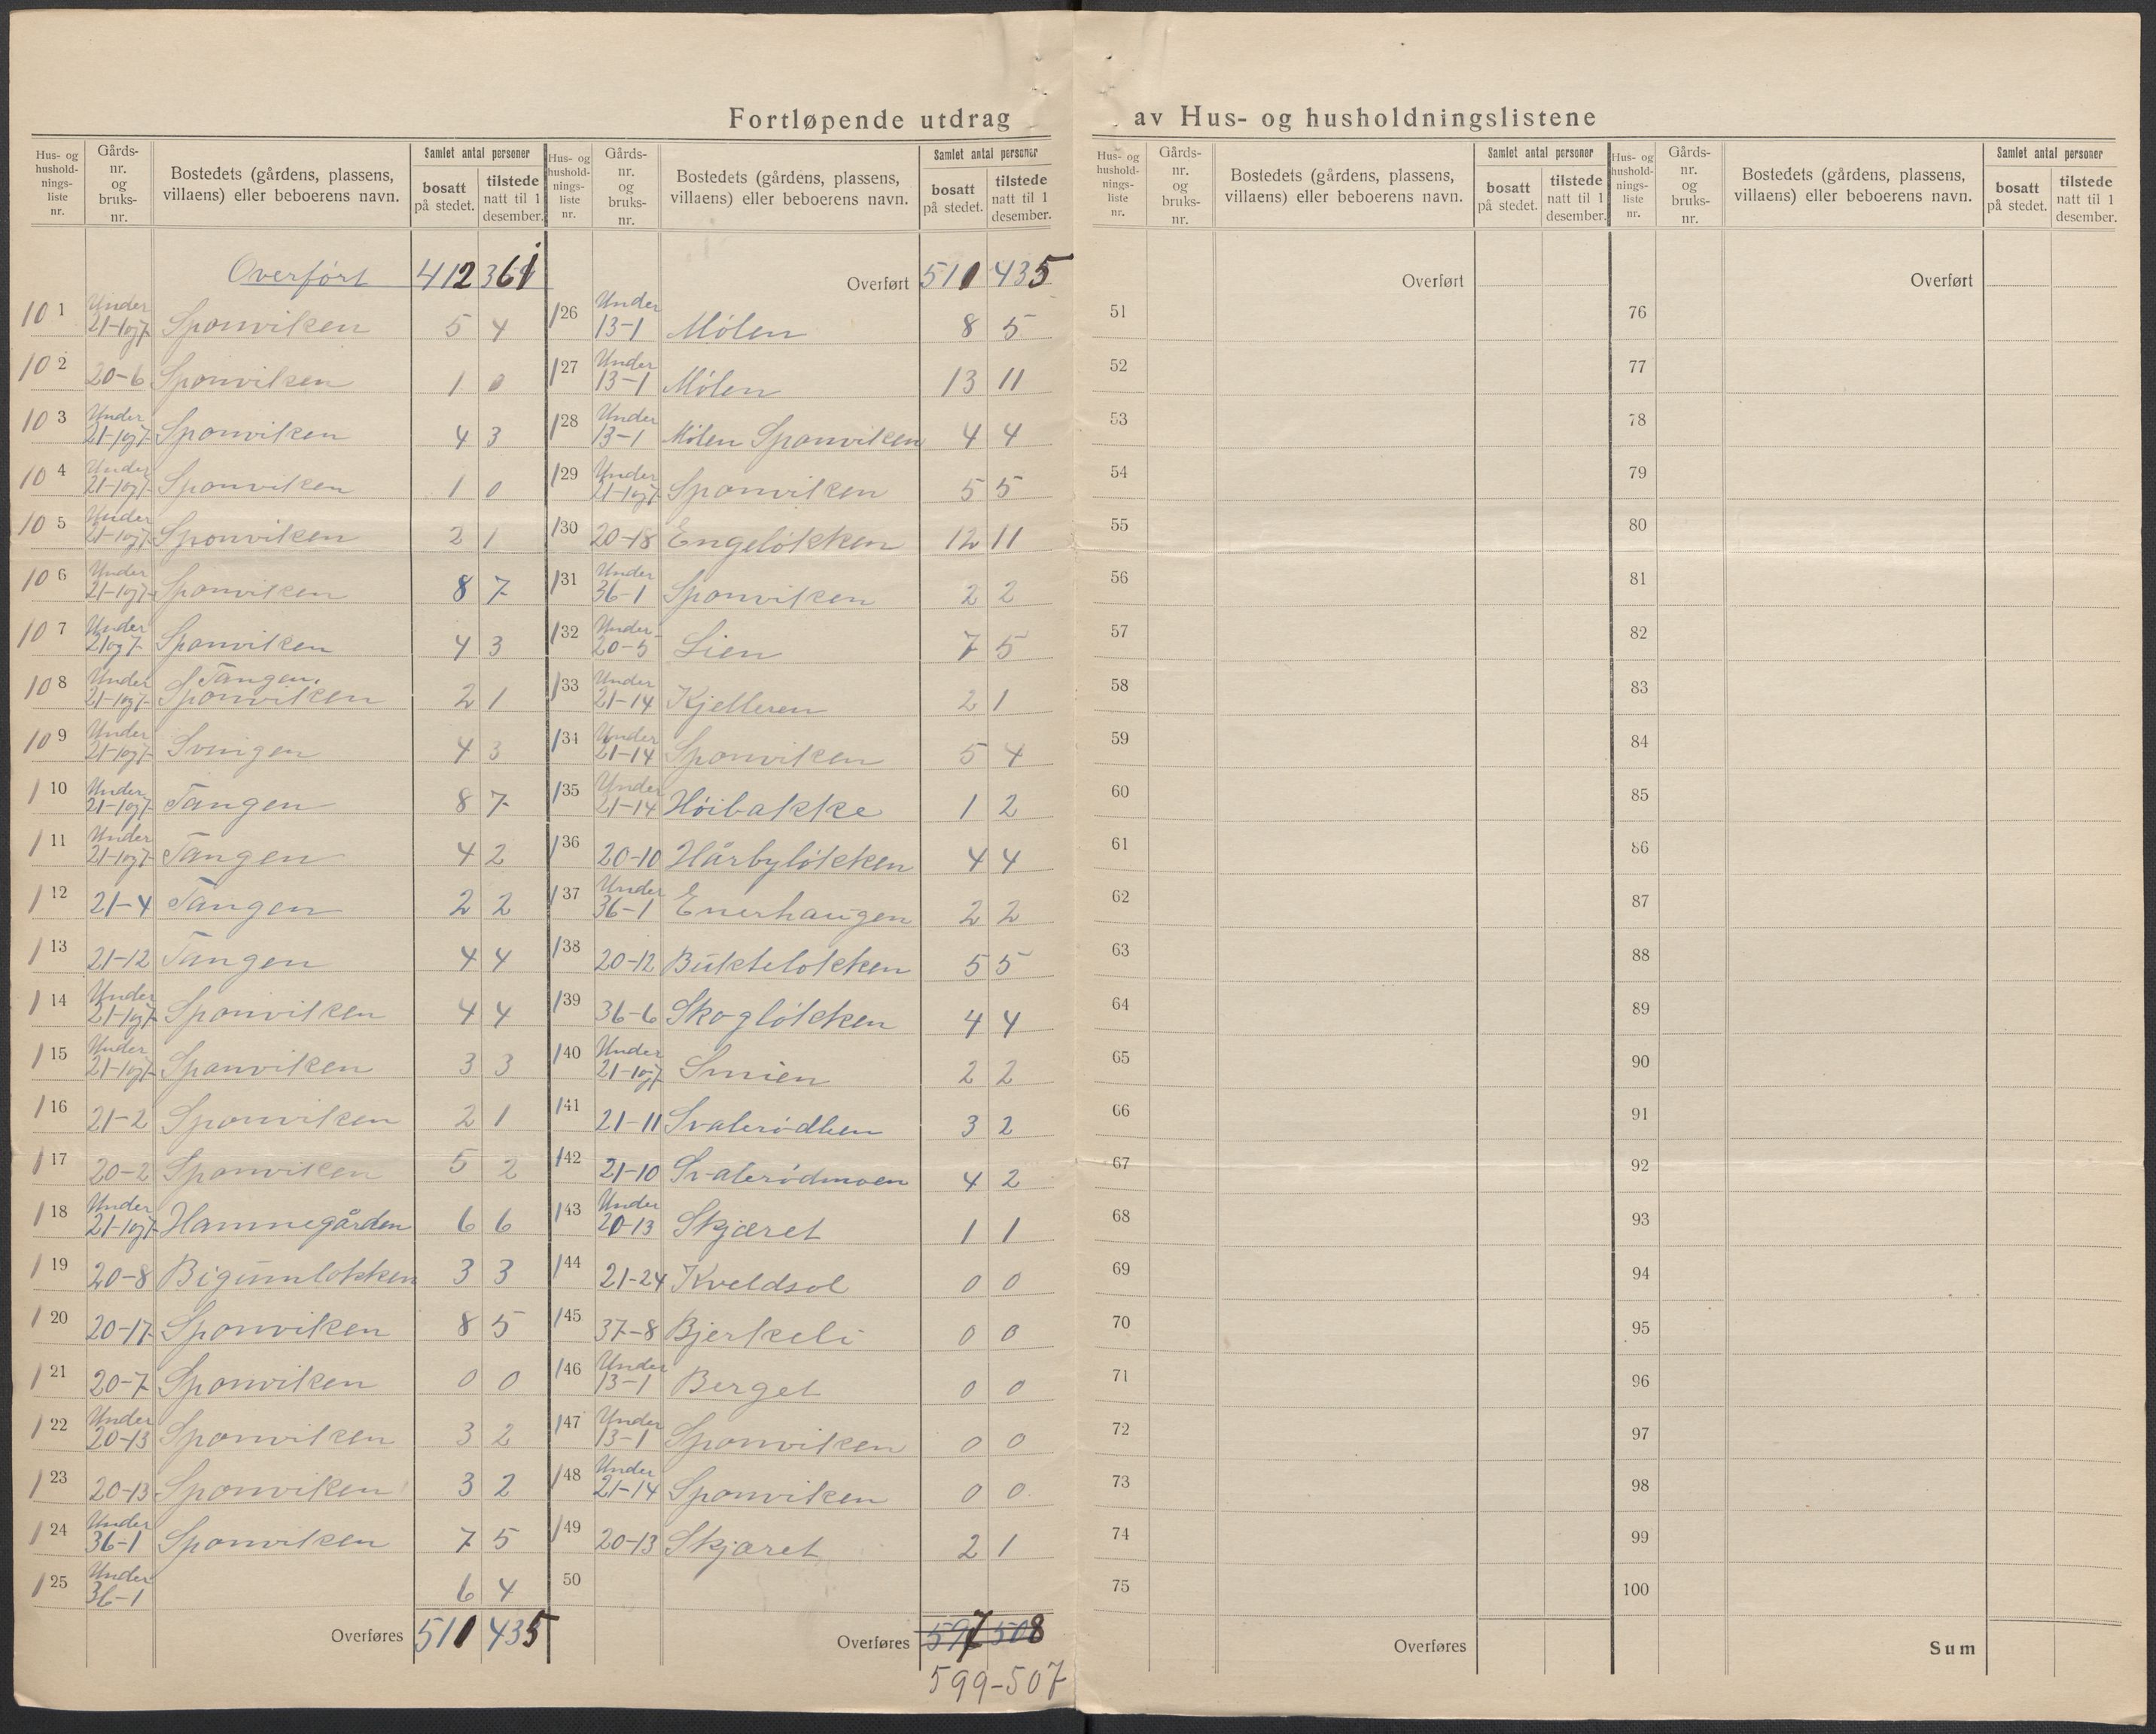 Fortløpende utdrag av Hus- og husholdningslistene
Hus- og husholdnings- liste nr. | Gårds- nr. og bruks- nr. | Bostedets (gårdens, plassens, villaens) eller beboerens navn. | Samlet antal personer | bosatt på stedet. | tilstede natt til 1 desember.
Overført 412 361
101 Under 21-1og7 Sponviken 5 4
102 20-6 Sponviken 1 0
103 Under 21-1og7 Sponviken 4 3
104 Under 21-1og7 Sponviken 1 0
105 Under 21-1og7 Sponviken 2 1
106 Under 21-1og7 Sponviken 8 7
107 Under 21og7 Sponviken 4 3
108 Under 21-1og7 Tangen, Sponviken 2 1
109 Under 21-1og7 Svingen 4 3
110 Under 21-1og7 Tangen 8 7
111 Under 21-1og7 Tangen 4 2
112 21-4 Tangen 2 2
113 21-12 Tangen 4 4
114 Under 21-1og7 Sponviken 4 4
115 Under 21-1og7 Sponviken 3 3
116 21-2 Sponviken 2 1
117 20-2 Sponviken 5 2
118 Under 21-1og7 Hamnegården 6 6
119 20-8 Bigumløkken 3 3
120 20-17 Sponviken 8 5
121 20-7 Sponviken 0 0
122 Under 20-13 Sponviken 3 2
123 20-13 Sponviken 3 2
124 Under 36-1 Sponviken 7 5
125 Under 36-1 6 4
Overføres 511 435
Hus- og husholdnings- liste nr. | Gårds- nr. og bruks- nr. | Bostedets (gårdens, plassens, villaens) eller beboerens navn. | Samlet antal personer | bosatt på stedet. | tilstede natt til 1 desember.
Overført 511 435
126 Under 13-1 Mølen 8 5
127 Under 13-1 Mølen 13 11
128 Under 13-1 Mølen Sponviken 4 4
129 Under 21-1og7 Sponviken 5 5
130 20-18 Engeløkken 12 11
131 Under 36-1 Sponviken 2 2
132 Under 20-5 Lien 7 5
133 Under 21-14 Kjelleren 2 1
134 Under 21-14 Sponviken 5 4
135 Under 21-14 Høibakke 1 2
136 20-10 Hårbyløkken 4 4
137 Under 36-1 Enerhaugen 2 2
138 20-12 Bukteløkken 5 5
139 36-6 Skogløkken 4 4
140 Under 21-1og7 Smien 2 2
141 21-11 Svalerødlien 3 2
142 21-10 Svalerødmoen 4 2
143 Under 20-13 Skjæret 1 1
144 21-24 Kveldsol 0 0
145 37-8 Bjerkeli 0 0
146 Under 13-1 Berget 0 0
147 Under 13-1 Sponviken 0 0
148 Under 21-14 Sponviken 0 0
149 20-13 Skjæret 2 1
50
Overføres 597 508
599-507
Hus- og husholdnings- liste nr. | Gårds- nr. og bruks- nr. | Bostedets (gårdens, plassens, villaens) eller beboerens navn. | Samlet antal personer | bosatt på stedet. | tilstede natt til 1 desember.
Overført
51
52
53
54
55
56
57
58
59
60
61
62
63
64
65
66
67
68
69
70
71
72
73
74
75
Overføres
Hus- og husholdnings- liste nr. | Gårds- nr. og bruks- nr. | Bostedets (gårdens, plassens, villaens) eller beboerens navn. | Samlet antal personer | bosatt på stedet. | tilstede natt til 1 desember.
Overført
76
77
78
79
80
81
82
83
84
85
86
87
88
89
90
91
92
93
94
95
96
97
98
99
100
Sum